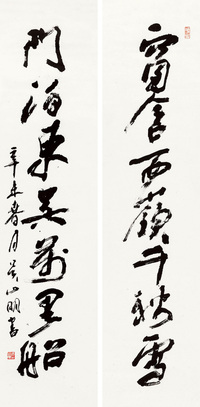 窗含西嶺千秋雪
門泊東吳萬里船
辛未春月吳山明書